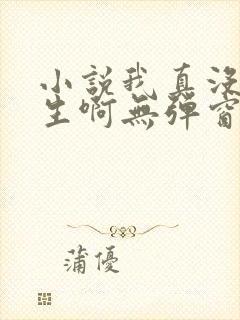 小說我真沒
生啊無彈窗
蒲優